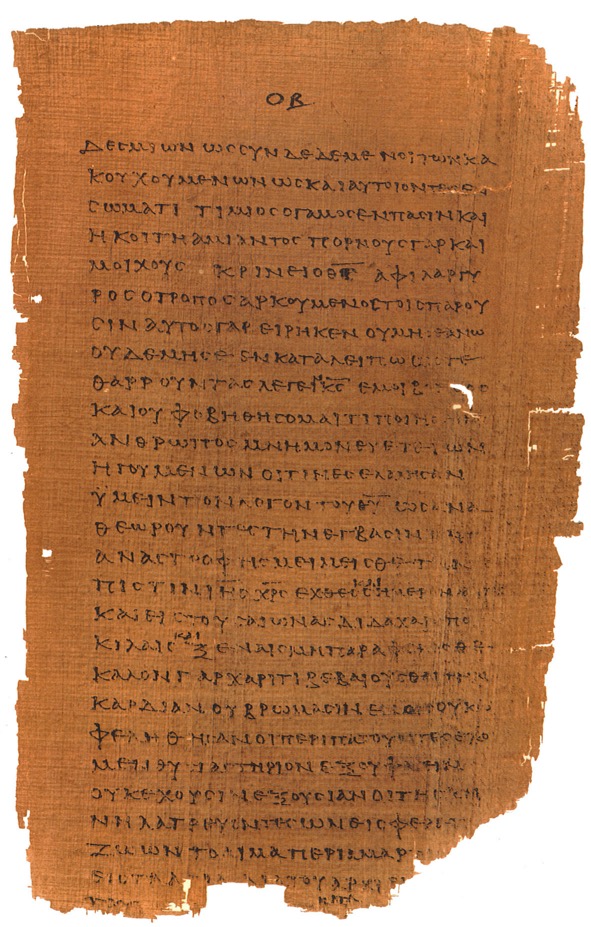 ΟΒ
ΔΕϹΜΙΩΝΩϹϹΥΝΔΕΔΕΜΕΝΟΙΤΩΝΚΑ
ΚΟΥΧΟΥΜΕΝΩΝΩϹΚΑΙΑΥΤΟΙΟΝΤΕϹΕΝ
ϹΩΜΑΤΙ ΤΙΜΙΟϹΟΓΑΜΟϹΕΝΠΑϹΙΝΚΑΙ
ΗΚΟΙΤΗΑΜΙΑΝΤΟϹΠΟΡΝΟΥϹΓΑΡΚΑΙ
ΜΟΙΧΟΥϹ ΚΡΙΝΕΙΟΘ̅Ϲ̅ ΑΦΙΛΑΡΓΥ
ΡΟϹΟΤΡΟΠΟϹΑΡΚΟΥΜΕΝΟϹΤΟΙϹΠΑΡΟΥ
ϹΙΝΑΥΤΟϹΓΑΡΕΙΡΗΚΕΝΟΥΜΗϹΕΑΝΩ
ΟΥΔΕΜΗϹΕΕΝΚΑΤΑΛΕΙΠΩΩϹΤΕ
ΘΑΡΡΟΥΝΤΑϹΛΕΓΕΙΚ̅Ϲ̅ ΕΜΟΙΒ
ΚΑΙΟΥΦΟΒΗΘΗϹΟΜΑΙΤΙΠΟΙΗ
ΑΝΘΡΩΠΟϹΜΝΗΜΟΝΕΥΕΤΕΤΩΝ
ΗΓΟΥΜΕΝΩΝΟΙΤΙΝΕϹΕΛΑΛΗϹΑΝ
ΫΜΕΙΝΤΟΝΛΟΓΟΝΤΟΥΘ̅Υ̅ ΩΝΑΝΑ
ΘΕΩΡΟΥΝΤΕϹΤΗΝΕΓΒΑϹΙΝΤΗϹ
ΑΝΑϹΤΡΟΦΗϹΜΕΙΜΕΙϹΘΕΤΗΝ
ΠΙϹΤΙΝΙ̅Η̅Ϲ̅Χ̅Ρ̅Ϲ̅ ΕΧΘΕϹΚΑΙϹΗΜΕΡΟΝ
ΚΑΙΕΙϹΤΟΥϹΑΙΩΝΑϹΔΙΔΑΧΑΙϹΠΟ
ΚΙΛΑΙϹΚΑΙΞΕΝΑΙϹΜΗΠΑΡΑΦΕΡΕϹΘΕ
ΚΑΛΟΝΓΑΡΧΑΡΙΤΙΒΕΒΑΙΟΥϹΘΑΙΤΗΝ
ΚΑΡΔΙΑΝΟΥΒΡΩΜΑϹΙΝΕΝΟΙϹΟΥΚΩ
ΦΕΛΗΘΗϹΑΝΟΙΠΕΡΙΠΑΤΟΥΝΤΕϹΕΧΟ
ΜΕΝΘΥϹΙΑϹΤΗΡΙΟΝΕΞΟΥΦΑΓΕΙΝ
ΟΥΚΕΧΟΥϹΙΝΕΞΟΥϹΙΑΝΟΙΤΗϹΚΗ
ΝΗΛΑΤΡΕΥΟΝΤΕϹΩΝΕΙϹΦΕΡΕ
ΖΩΩΝΤΟΑΙΜΑΠΕΡΙΑΜΑΡ
ΕΙϹΤΑΑΓΙΑΔΙΑΤΟΥΑΡΧΙΕΡ